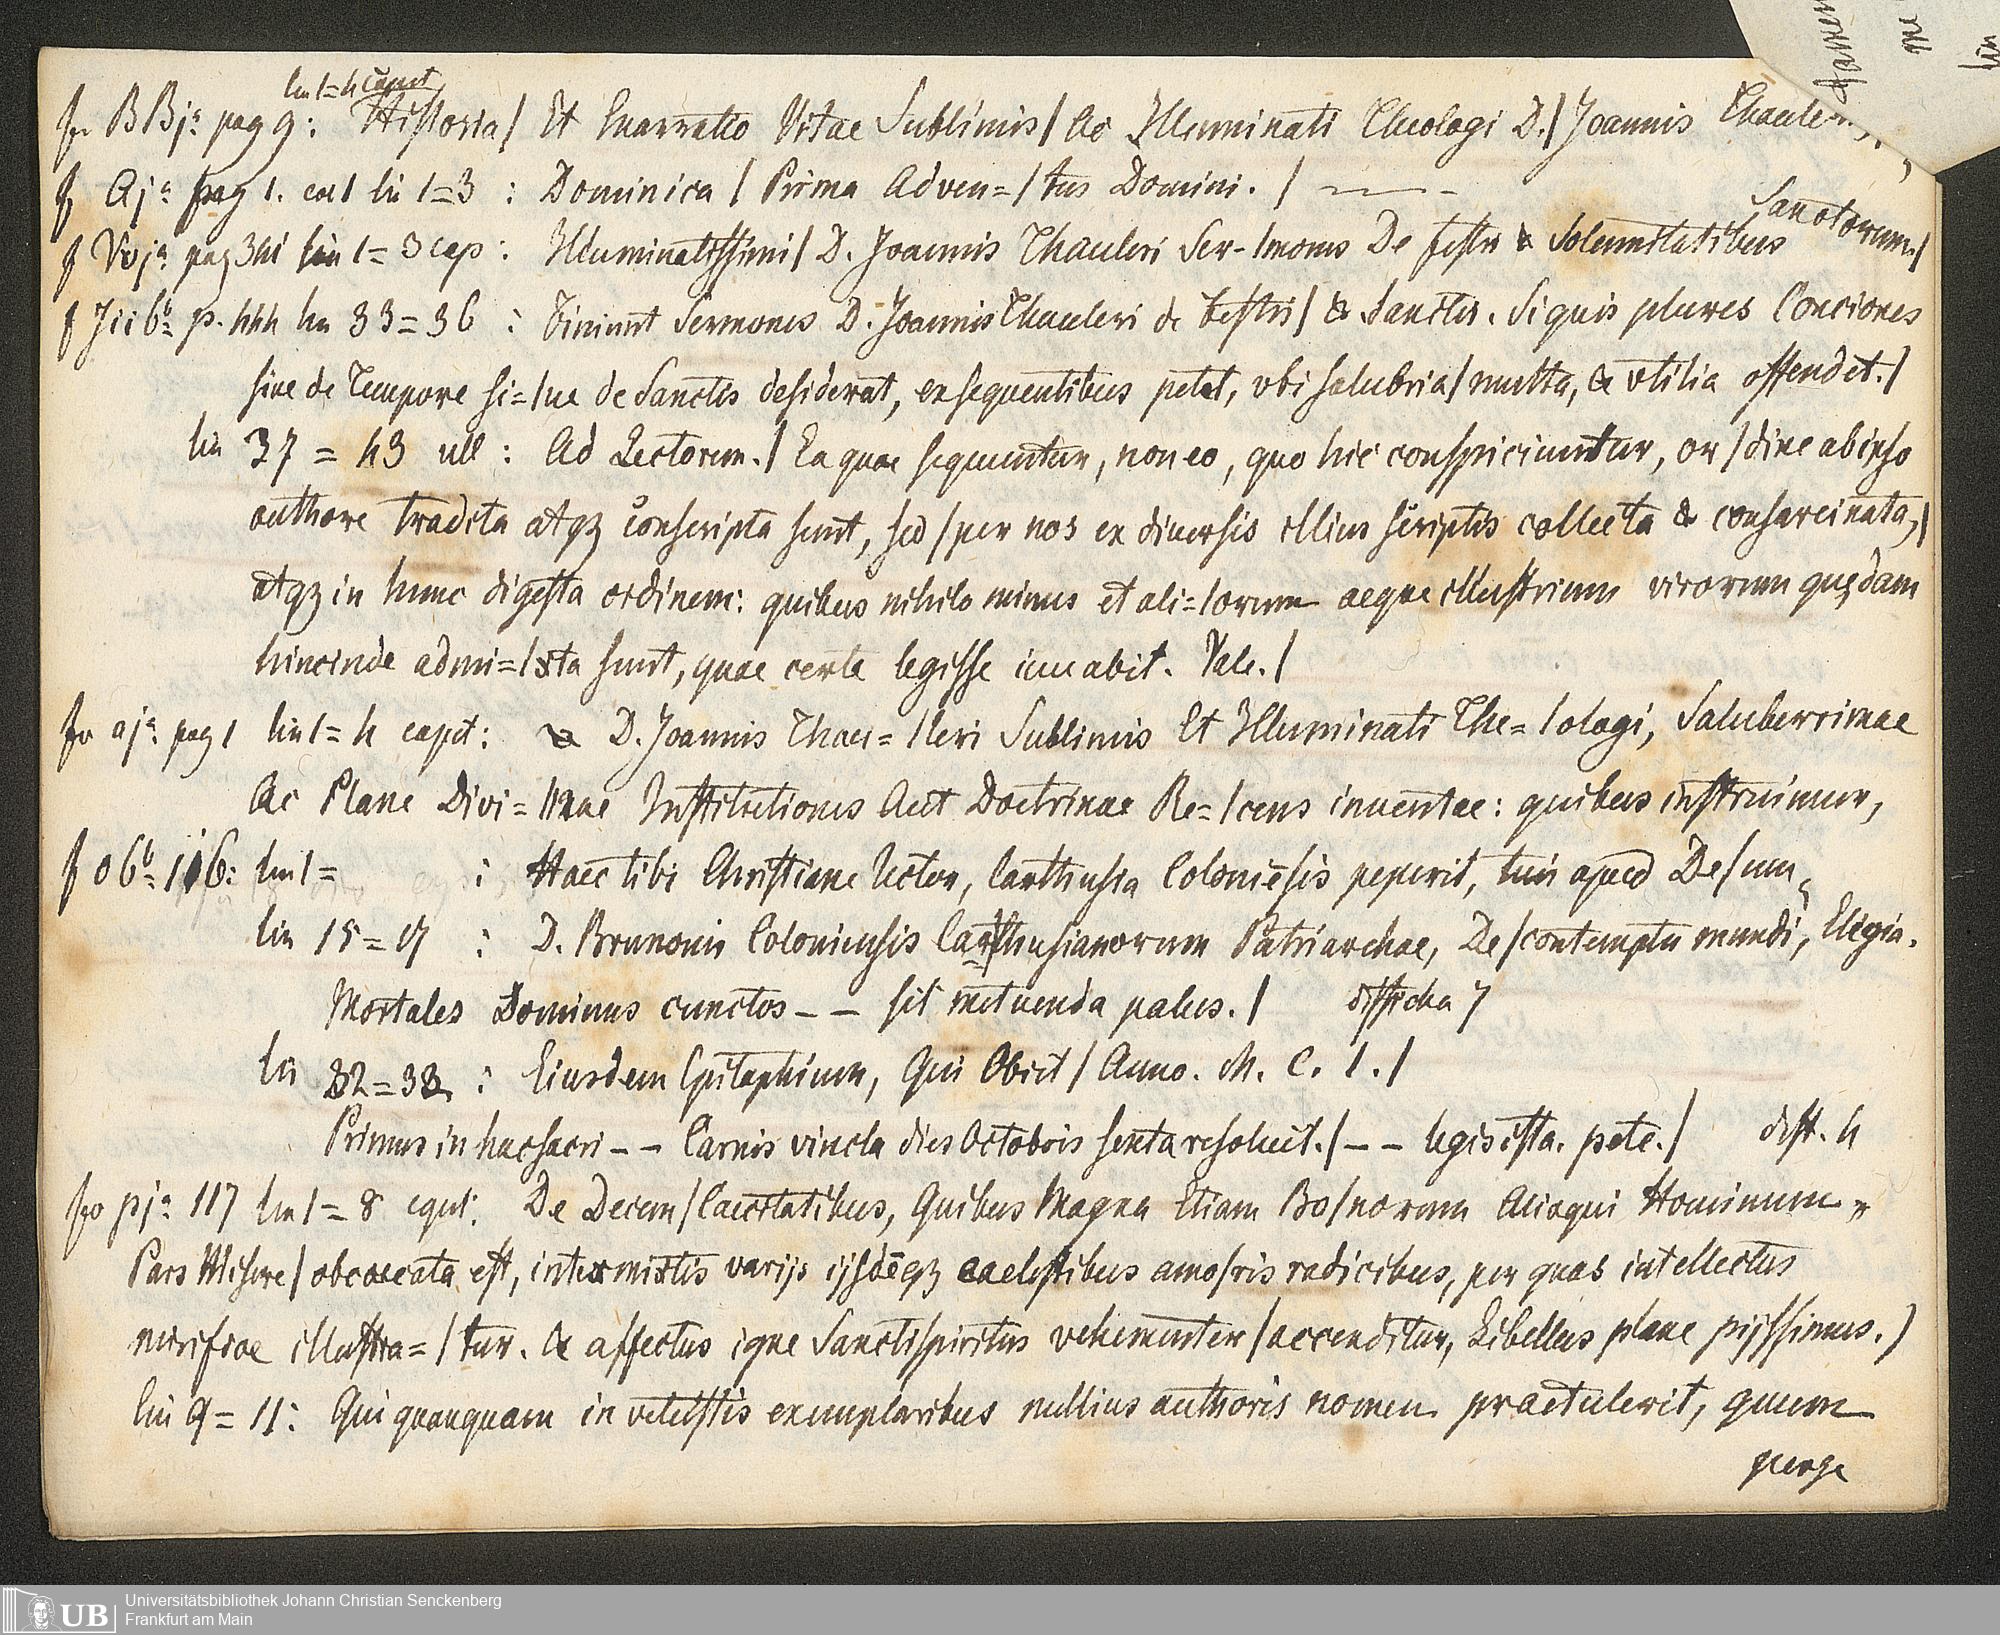 lin 1=4 caput
fo BBja pag 9: Historia/ Et Enarratio Vitae Sublimis/ Ac Illuminati Theologi D./ Joannis Thaule
f Aja pag 1. col 1 lin 1=3 : Dominica / Prima Adven=/tus Domini. /
Sanctorum/
f Vvja pag 341 lin 1=3 cap: Illuminatissimi/ D. Joannis Thauleri Ser-/mones De festis & Solemnitatibus
f Jii6b p. 444 lin 33=36 : Finiunt Sermones D. Joannis Thauleri de Festis/ & Sanctis. Siquis plures Conciones
siue de Tempore si=/ue de Sanctis desiderat, ex sequentibus petet, vbi salubria/ multa, & vtilia offendet./
lin 37 = 43 ull : Ad Lectorem./ Ea quae sequuntur, non eo, quo hic conspiciuntur, or/dine ab ipso
authore tradita atqz conscripta sunt, sed/ per nos ex diuersis illius scriptis collecta & consarcinata,/
atqz in hunc digesta ordinem: quibus nihilo minus et ali=/orum aeque illustrium virorum quędam
hincinde admi=/xta sunt, quae certe legisse iuuabit. Vale./
fo aja pag 1 lin 1=4 caput: D. Joannis Thau=/leri Sublimis Et Illuminati The=/ologi, Saluberrimae
Ac Plane Divi=//nae Institutiones Aut Doctrinae Re=/cens inuentae: quibus instruimur,
f o6b 116: lin 1= : Haec tibi Christiane lector, Carthusia Coloniēsis peperit, tuū apud De/um
lin 15=17 : D. Brunonis Coloniensis Carthusianorum Patriarchae, De/ contemptu mundi, Elegia.
Mortales Dominus cunctos - - sit metuenda palus. / disticha 7
lin 32=33 : Eiusdem Epitaphium, Qui Obiit/ Anno. M. C. I./
Primus in hac sacri - - Carnis vincla dies Octobris sexta resoluit./ - - legis ista. pete./ dist. 4
fo pja 117 lin 1=8 caput: De Decem/ Caecitatibus, Quibus Magna Etiam Bo/norum Alioqui Hominum
Pars Misere/ obcaecata est, intermixtis varijs ijsdēqz caelestibus amo/ris radicibus, per quas intellectus
mirifice illustra=/tur. & affectus igne Sancti spiritus vehementer/ accenditur, Libellus plane pijssimus./
lin 9=11: Qui quanquam in vetustis exemplaribus nullius authoris nomen praetulerit, quum
perge
Universitätsbibliothek Johann Christian Senckenberg
UB Frankfurt am Main